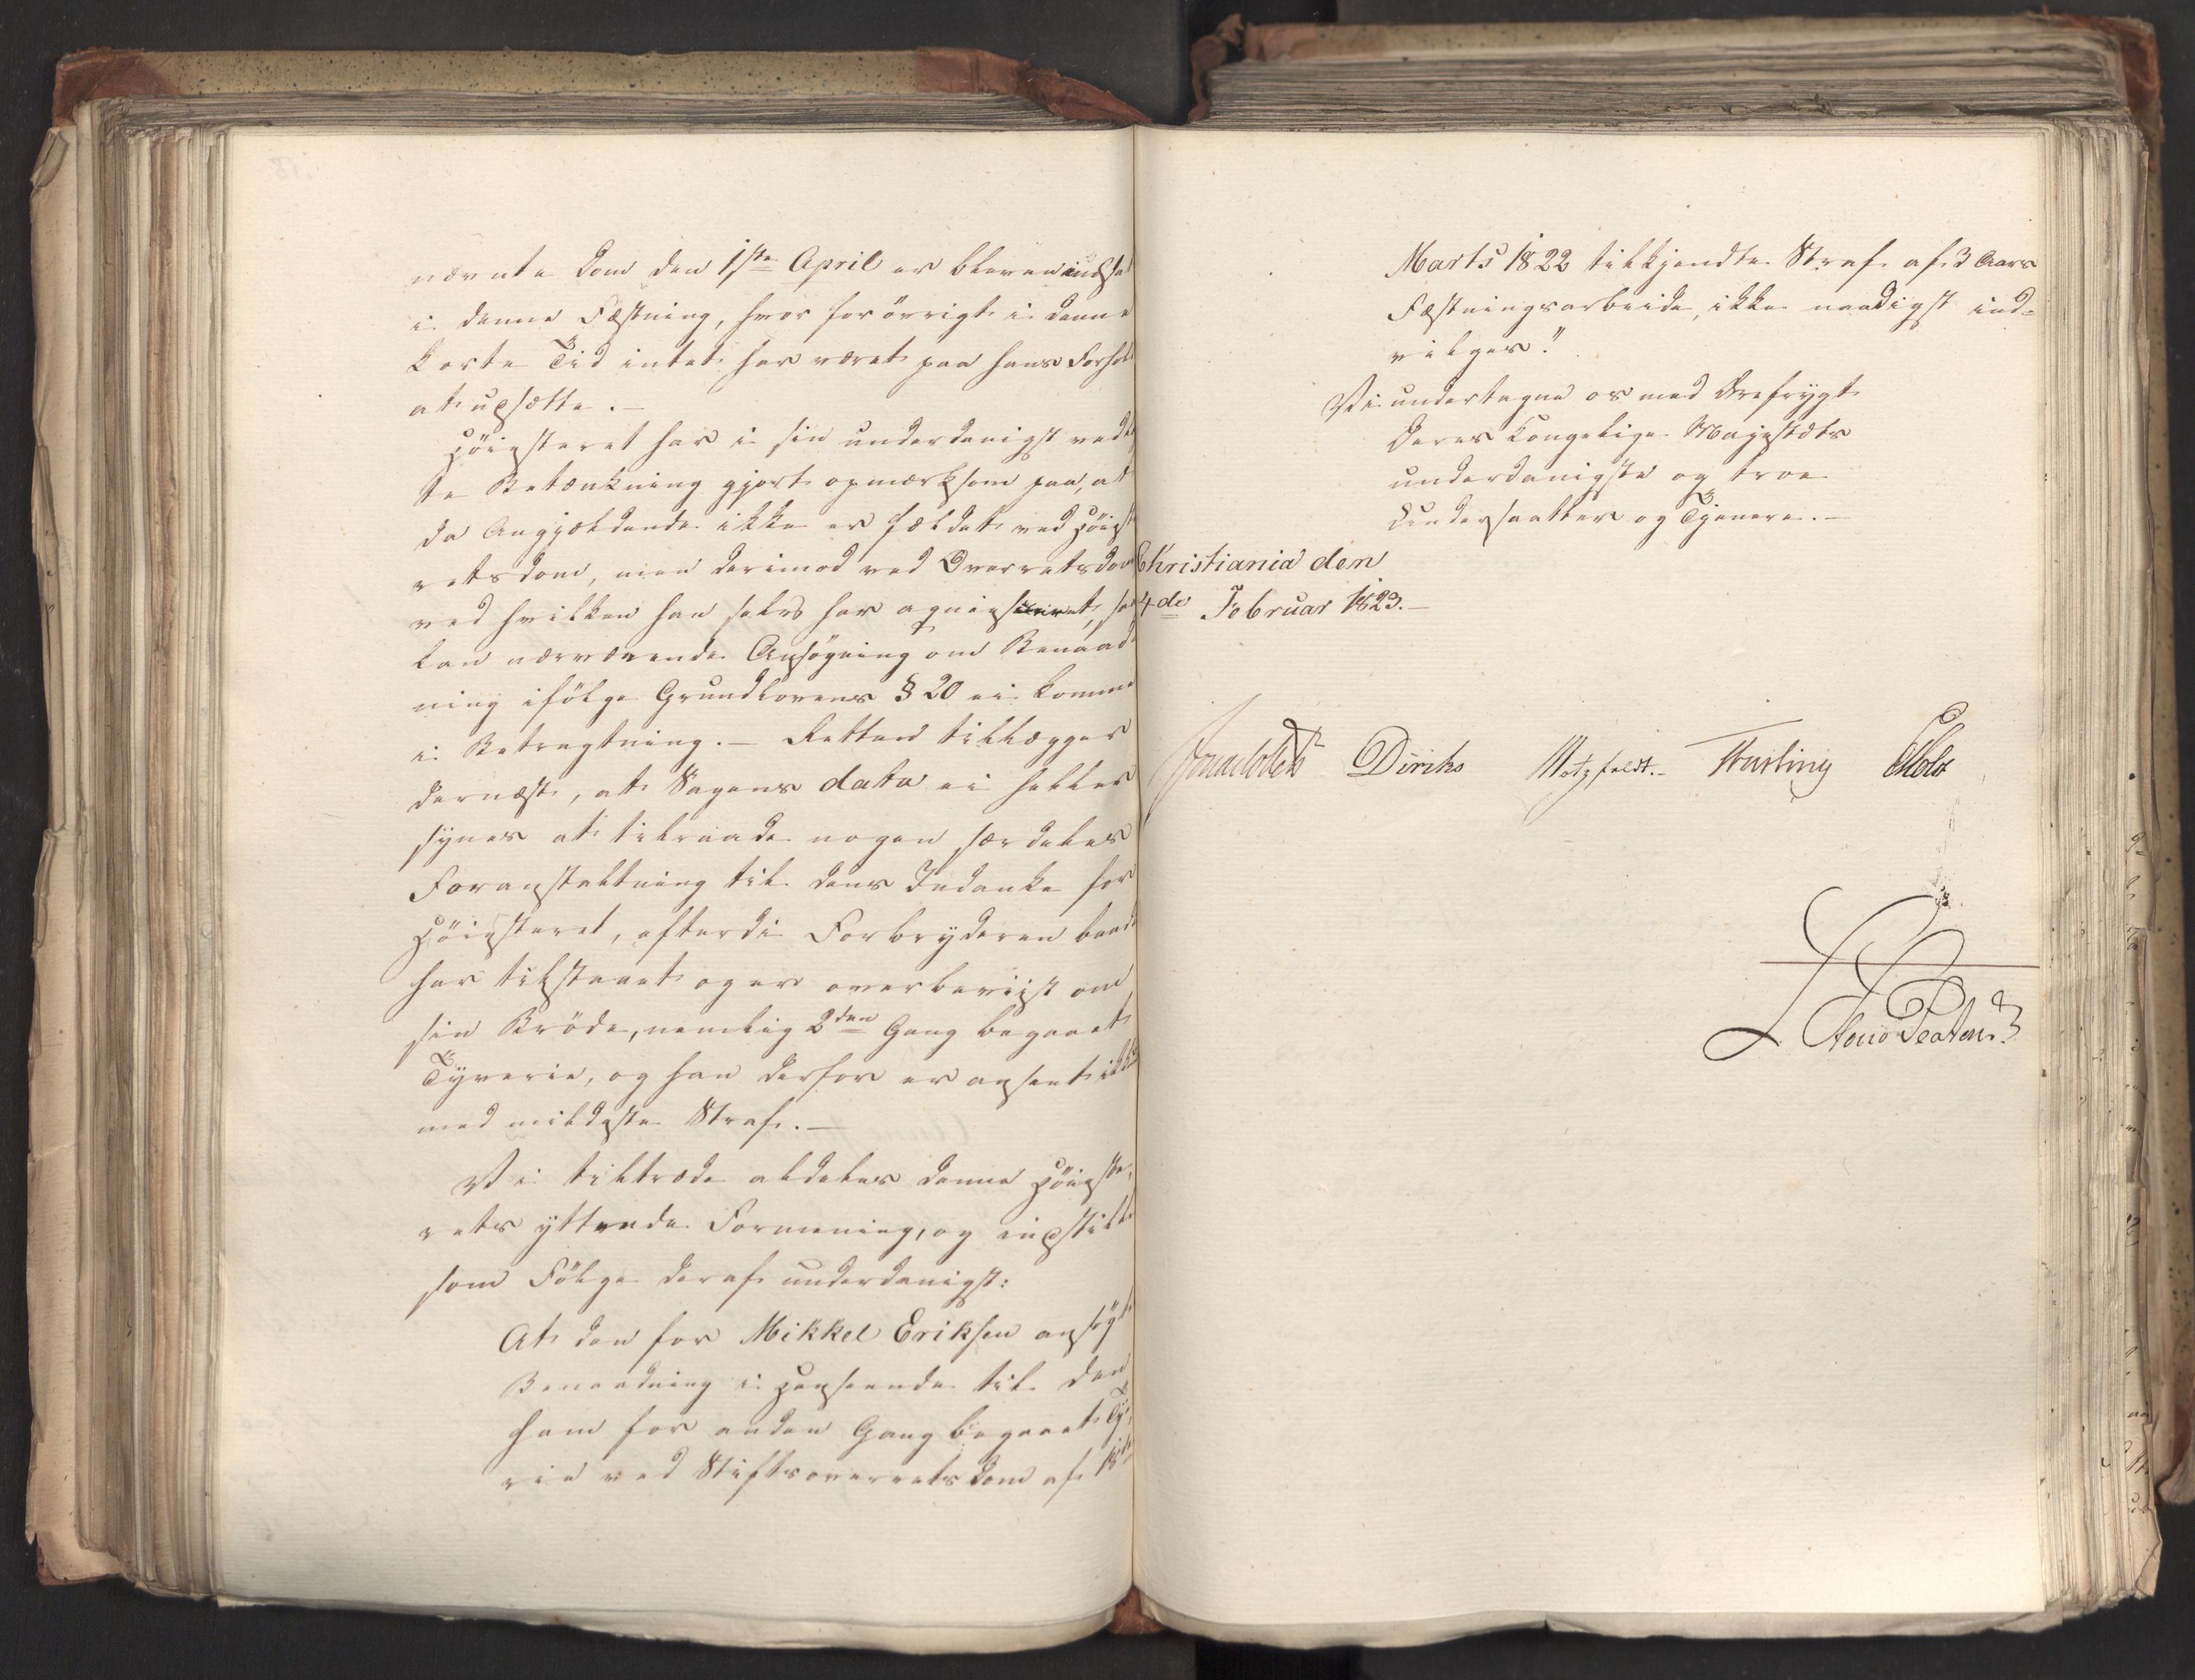 nævnte Dom den 1ste April er bleven indsat
i denne Fæstning, hvor forövrigt i denne
korte Tid intet har været paa hans Forhold
at udsætte. —
Höiesteret har i sin underdanigst ved
te Betænkning gjort opmærksom paa, at
da Angjældende ikke er fældet ved Höieste
retsdom, men derimod ved Overretsdom
ved hvilken han selv har acquiesceret, saa
kan nærværende Ansøgning om Benaad
ning ifölge Grundlovens § 20 ei komme
i Betragtning. — Retten tillægger
dernæst, at Sagens data ei heller
synes at tilraade nogen særdeles
Foranstaltning til dens Indanke for
Höiesteret, efterdi Forbryderen baade
har tilstaaet og er overbeviist om
sin Bröde, nemlig 2den Gang begaaet
Tyverie, og han derfor er anseet ikkun
med mildeste Straf. —
Vi tiltræde aldeles denne Höieste-
rets yttrede Formening, og indstille
som Fölge deraf underdanigst:
At den for Mikkel Eriksen ansøgte
Benaadning i Henseende til den
ham for anden Gang begaaet Tyve
rie ved Stiftsoverretsdom af 18de
Marts 1822 tilkjendte Straf af 3 Aars
Fæstningsarbeide, ikke naadigst ind-
vilges."
Vi undertegne os med Ærefrygt
Deres Kongelige Majestæts
underdanigste og troe
Undersaatter og Tjenere. —
Christiania den
4de Februar 1823. —
Diriks Motzfeldt. Treschow Holst